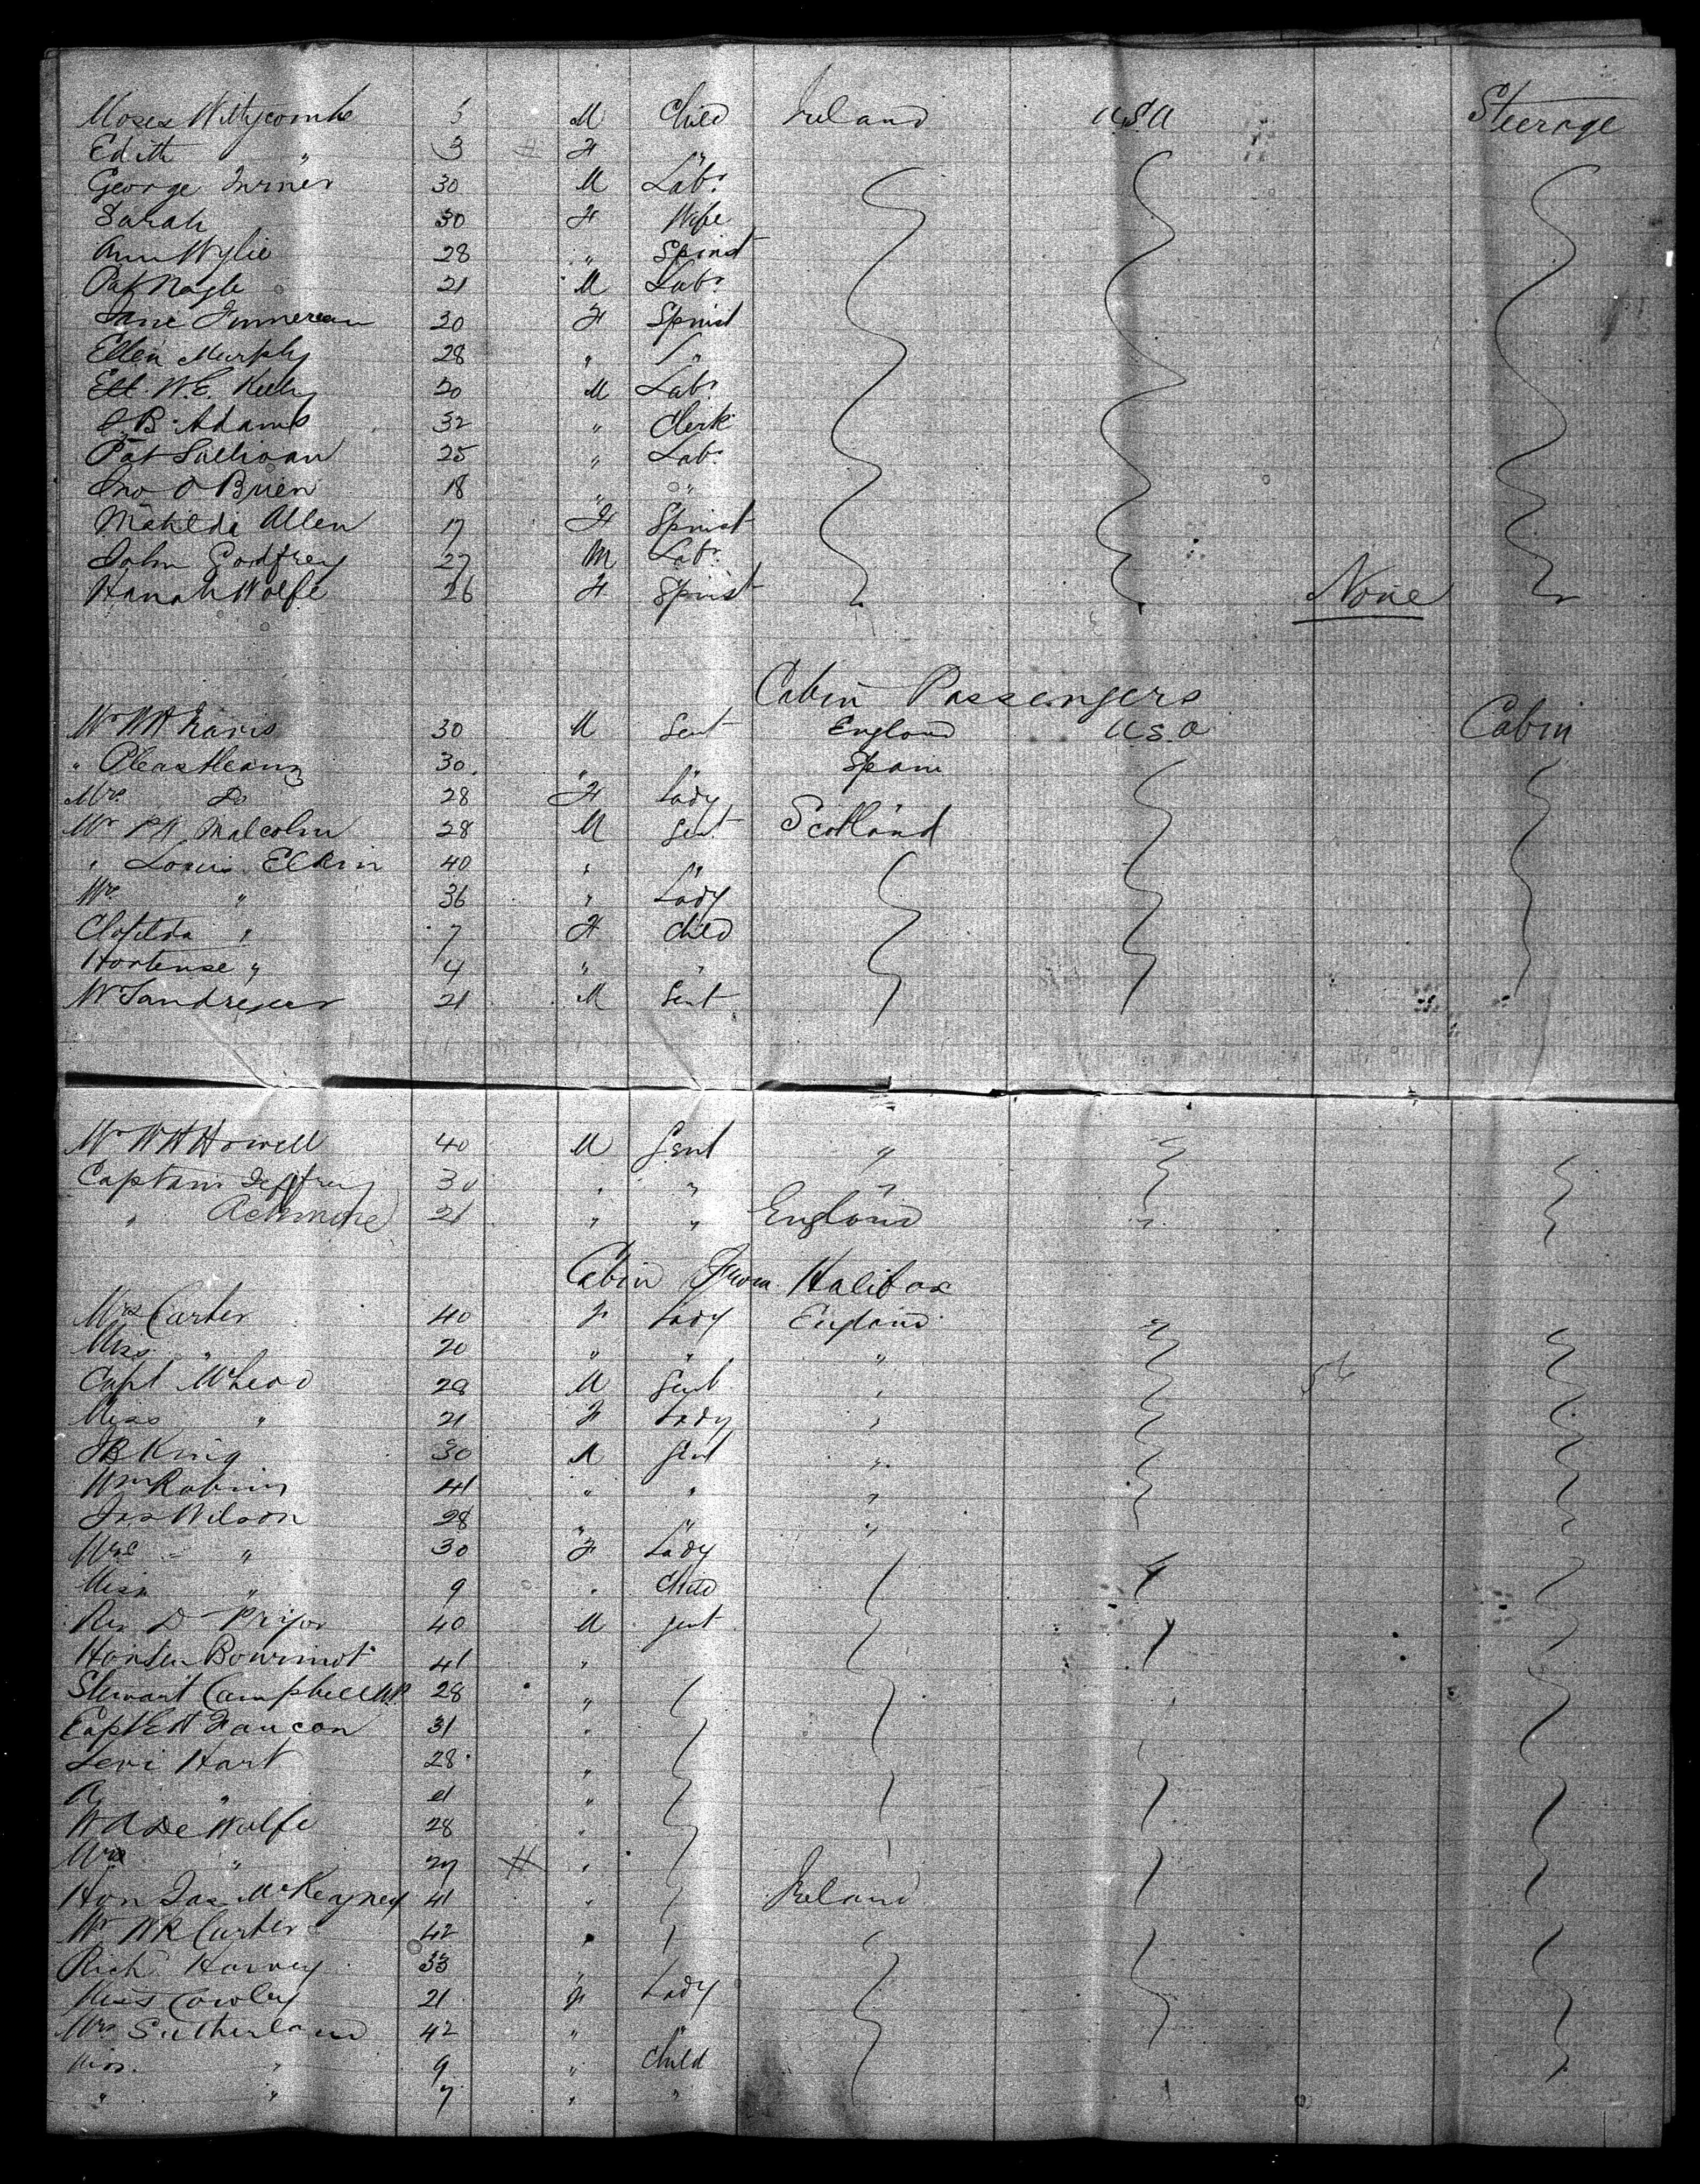 Moses Withycombe 5 M Child Ireland USA Steerage
Edith " 3 F "
George Turner 30 M Labr
Sarah 30 F Wife
Ann Wylie 28 " Spinst
Pat Nagle 21 M Labr
Jane 20 F Spinst
Ellen Murphy 28 " "
W.E. Kelly 20 M Labr
J B Adams 32 " Clerk
Pat Sullivan 25 " Labr
Jno O Brien 18 " "
Matilda Allen 17 F Spinst
John Godfrey 27 M Labr
Hanah Wolfe 26 F Spinst None
Cabin Passengers
Mr W H 30 M Gent England USA Cabin
" 30 " " Spain
Mrs Do 28 F Lady
Mr P H Malcolm 28 M Gent Scotland
" Louis Elkin 40 " "
Mrs " 36 " Lady
Clotilda " 7 F Child
Hortense " 4 " "
Mr 21 M Gent
Mr W H Howell 40 M Gent "
Captain Jeffrey 30 " " "
" 21 " " England
Cabin From Halifax
Mrs Carter 40 F Lady England
Miss " 20 " " "
Capt McLeod 28 M Gent "
Miss " 21 F Lady "
King 30 M Gent "
Wm Robins 41 " " "
Jas Wilson 28 " " "
Mrs " 30 F Lady
Miss " 9 " Child
Rev D Pryor 40 M Gent
Bourinot 41 "
Stewart Campbell MP 28 "
Capt E H Faucon 31 "
Levi Hart 28 "
A " 21 "
W A De Wolfe 28 "
Mrs " 27 "
Hon Jas McKeagney 41 " Ireland
Mr W R Carter 42 "
Richd Harvey 33 "
Miss Cowley 21 F Lady
Mrs Sutherland 42 " "
Miss " 9 " Child
" " 7 " "